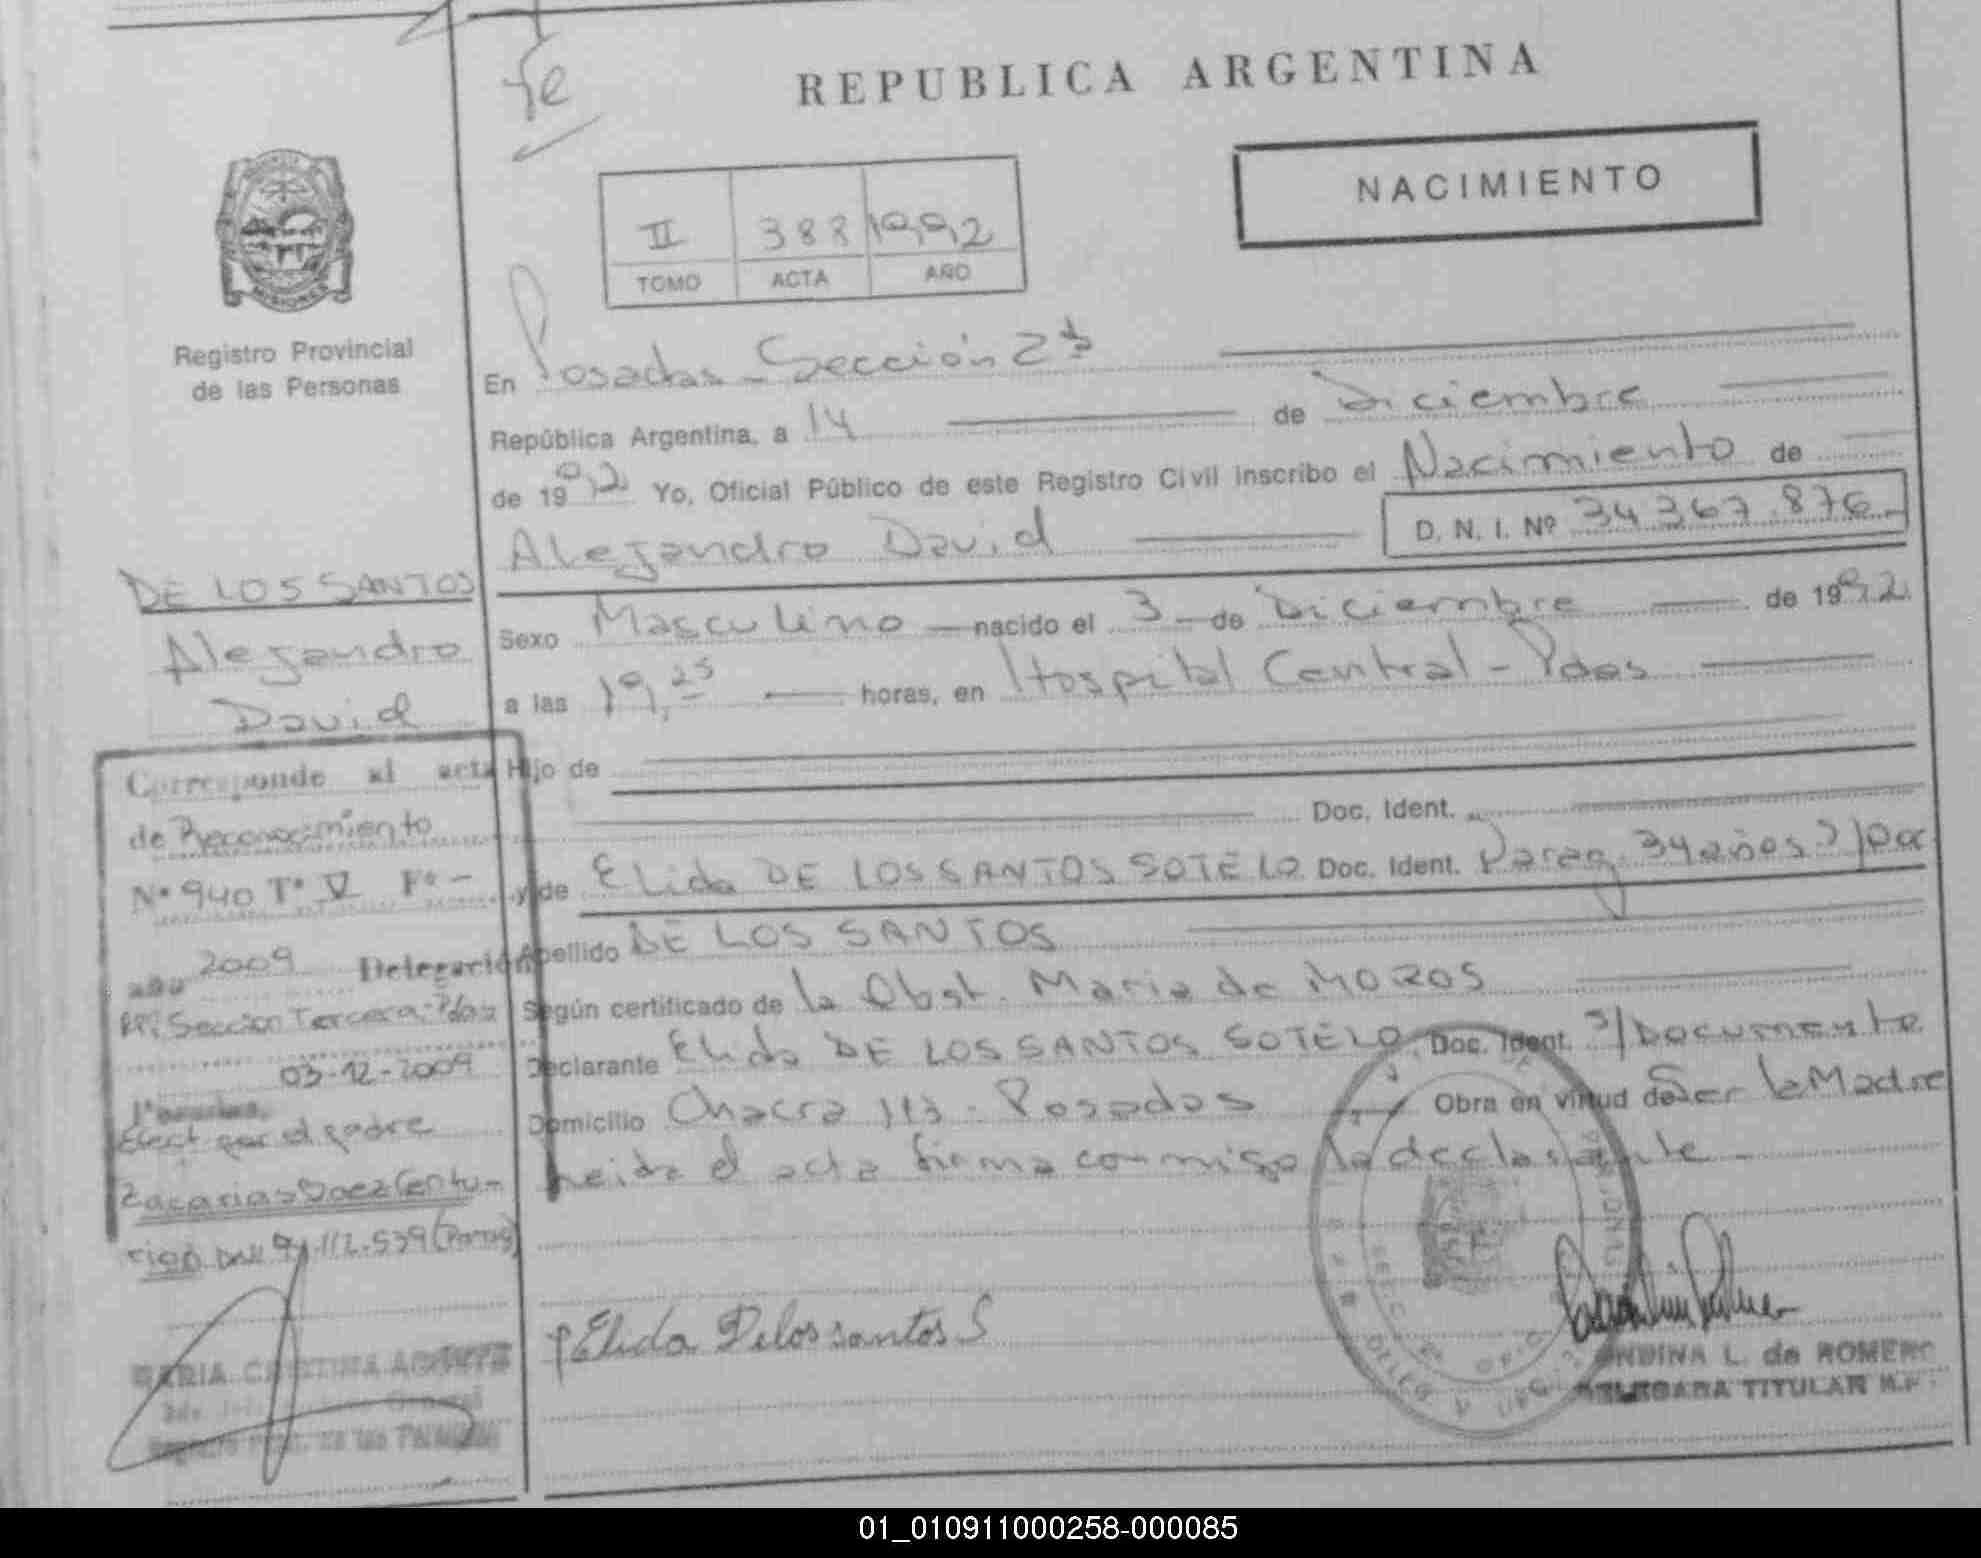 fe
REPUBLICA ARGENTINA
NACIMIENTO
II 388 1992
TOMO ACTA AÑO
MISIONES
Registro Provincial
de las Personas
En Posadas - Sección 2ª
República Argentina, a 14 de Diciembre
de 1992 Yo, Oficial Público de este Registro Civil inscribo el Nacimiento de
Alejandro David D. N. I. Nº 34367.876-
DE LOS SANTOS
Alejandro
David
Sexo Masculino nacido el 3 de Diciembre de 1992
a las 19,25 horas, en Hospital Central - Pdas
Hijo de
Doc. Ident.
y de Elida DE LOS SANTOS SOTELO Doc. Ident. Parag. 34 años S/Doc
Apellido DE LOS SANTOS
Según certificado de la Obst. Maria de MOROS
Declarante Elida DE LOS SANTOS SOTELO Doc. Ident. S/Documento
Domicilio Chacra 113 - Posadas Obra en virtud de Ser la Madre
leida el acta firma conmigo la declarante
Corresponde al acta
de Reconocimiento
Nº 940 Tº V Fº -
año 2009 Delegación
RP. Seccion Tercera - Pdas
03-12-2009
Posadas,
Efect por el padre
Zacarias Baez Centu-
rion DNI 94.112.539 (Parag)
Elida Delossantos S
MARIA CRISTINA
L. de ROMERO
DELEGADA TITULAR
01_010911000258-000085